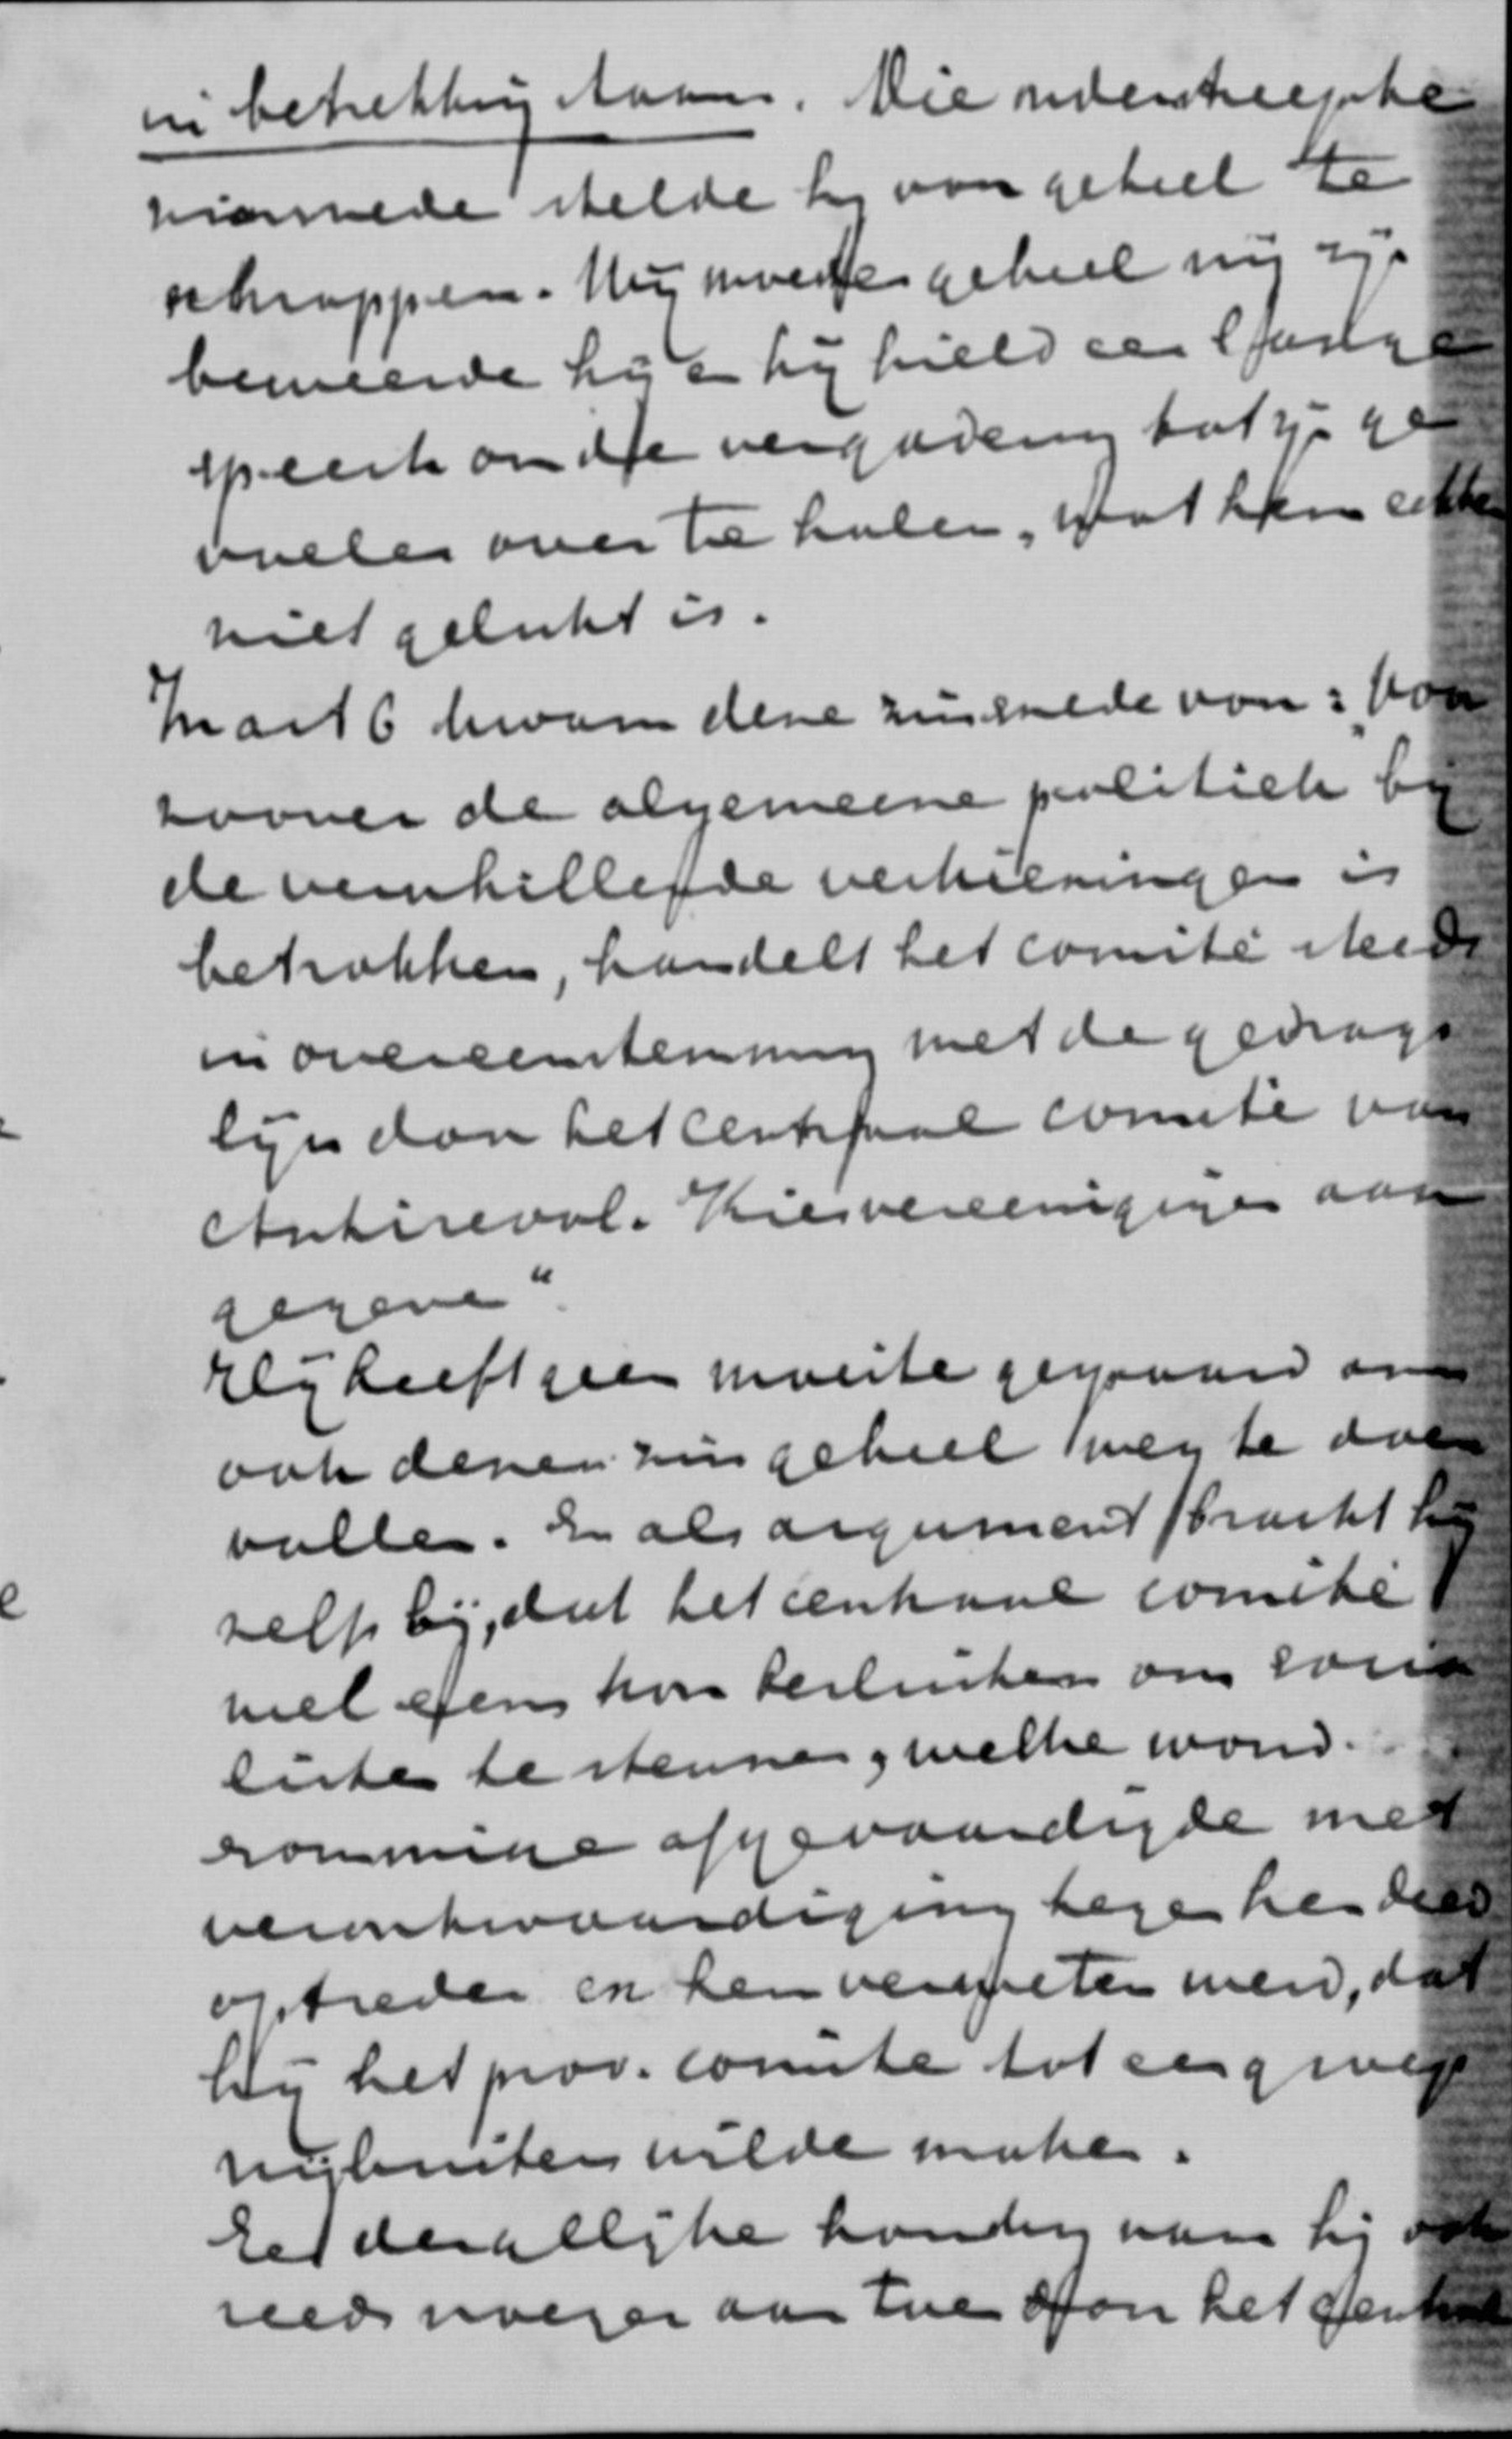 in betrekking staan. Die onderstreepte
zinsnede stelde hij voor geheel te
schrappen. Wij moesten geheel vrij zijn
beweerde hij en hij hield een lange
speech om de vergadering tot zijn ge
voelen over te halen, wat hem echter
niet gelukt is.
In art 6 kwam deze zinsnede voor: "Voor
zoover de algemeene politiek bij
de verschillende verkiezingen is
betrokken, handelt het comité steeds
in overeenstemming met de gedrags
lijn door het centraal comité van
Antirevol. Kiesvereenigingen aan
gegeven".
Hij heeft geen moeite gespaard om
ook dezen zin geheel weg te doen
vallen. En als argument bracht hij
zelfs bij, dat het centraal comité
wel eens kon besluiten om socia
listen te steunen, welke woord.
sommige afgevaardigde met
verontwaardiging tegen hem deed
optreden en hem verweten werd, dat
hij het prov. comité tot een groep
vrijbuiters wilde maken.
Eet dergelijke houding nam hij ook
reeds vroeger aan toen door het Central